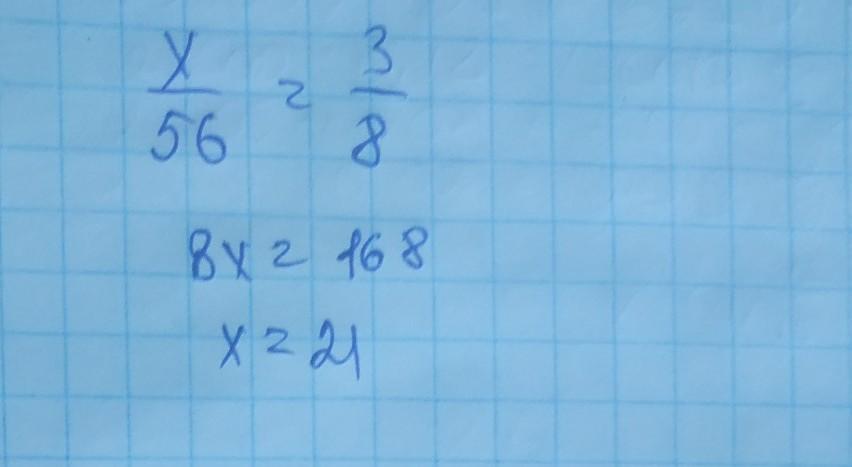 x/56 = 3/8
8x = 168
x = 21